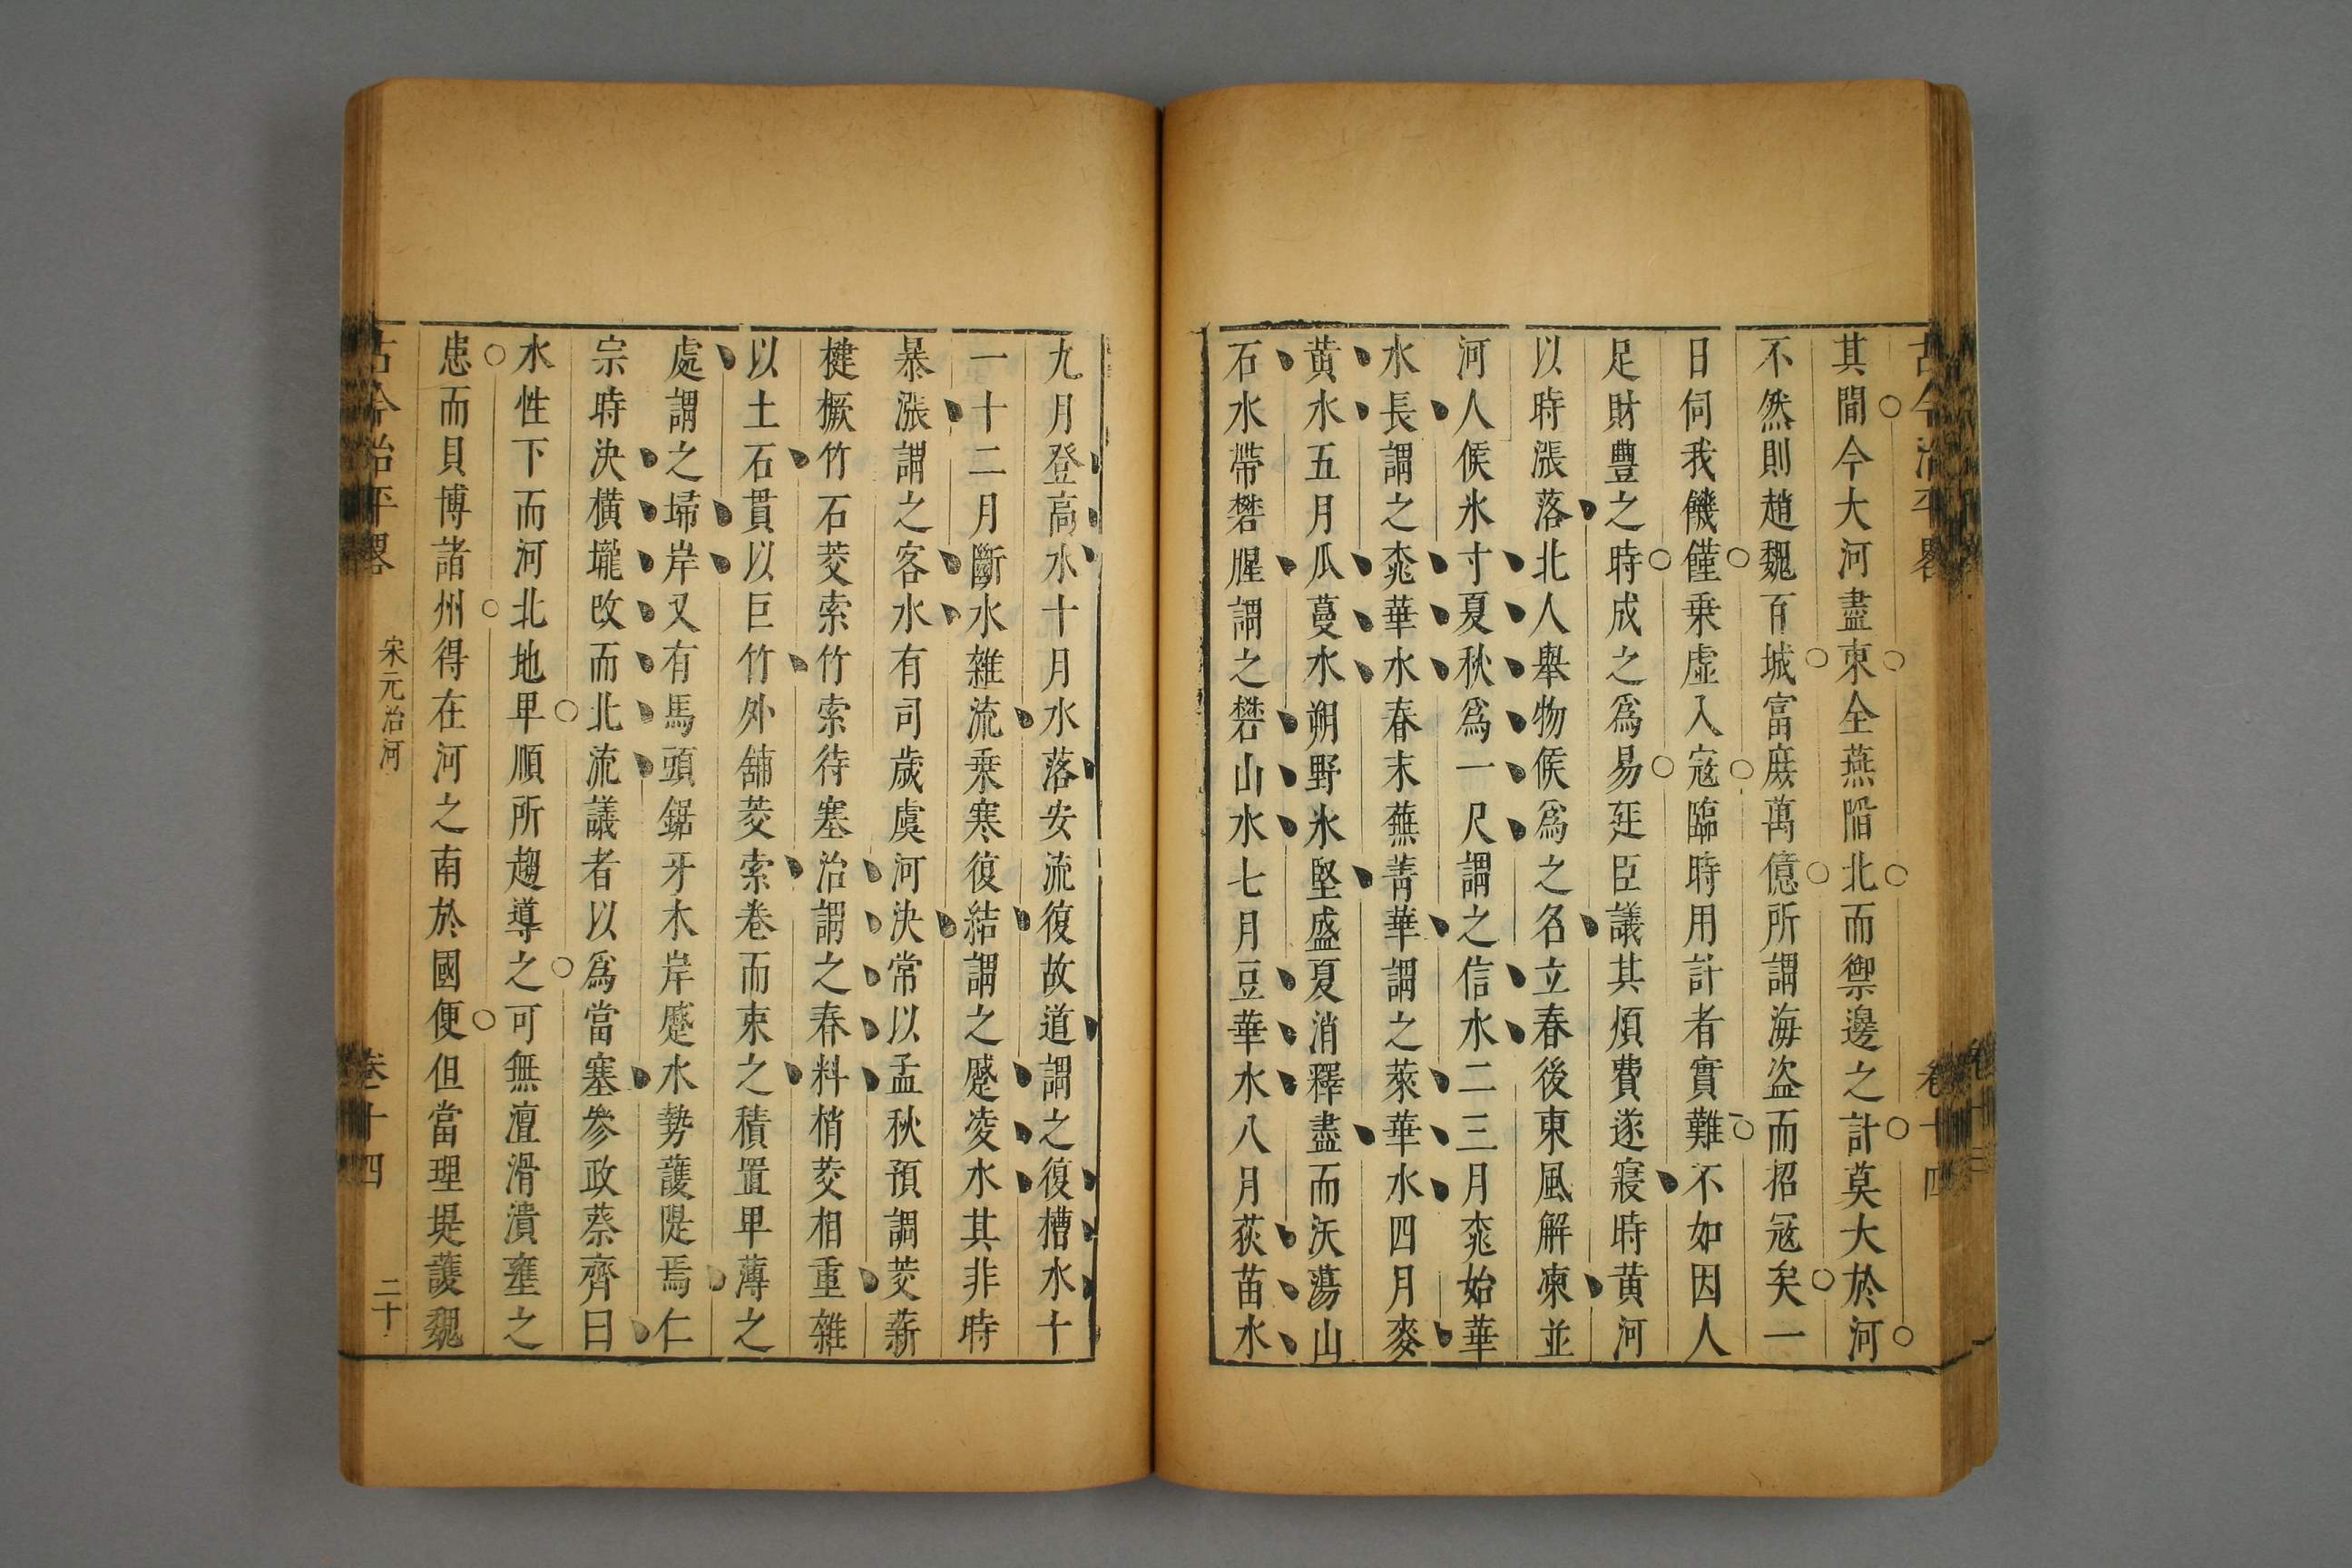 古今治平畧
卷十四
其間今大河盡東全燕陷北而禦邊之計莫大於河
不然則趙魏百城富庶萬億所謂海盜而招冦矣一
日伺我饑饉乗虛入冦臨時用計者實難不如因人
足財豐之時成之爲易廷臣議其煩費遂寢時黄河
以時漲落北人舉物候爲之名立春後東風解凍並
河人候氷寸夏秋爲一尺謂之信水二三月桃始華
水長謂之桃華水春末蕪菁華謂之萊華水四月麥
黄水五月瓜蔓水朔野氷堅盛夏消釋盡而沃蕩山
石水帶礬腥謂之礬山水七月豆華水八月荻苗水
九月登高水十月水落安流復故道謂之復槽水十
一十二月斷水雜流乗寒復結謂之蹙凌水其非時
暴漲謂之客水有司歲虞河決常以孟秋預調茭薪
楗橛竹石茭索竹索待塞治謂之春料梢茭相重雜
以土石貫以巨竹外舖茭索卷而束之積置甲薄之
處謂之埽岸又有馬頭鋸牙木岸蹙水勢護隄焉仁
宗時決横壠改而北流議者以爲當塞參政蔡齊曰
水性下而河北地甲順所趨導之可無澶滑潰壅之
患而貝博諸州得在河之南於國便但當理堤護魏
古今治平畧
宋元治河
卷十四
二十